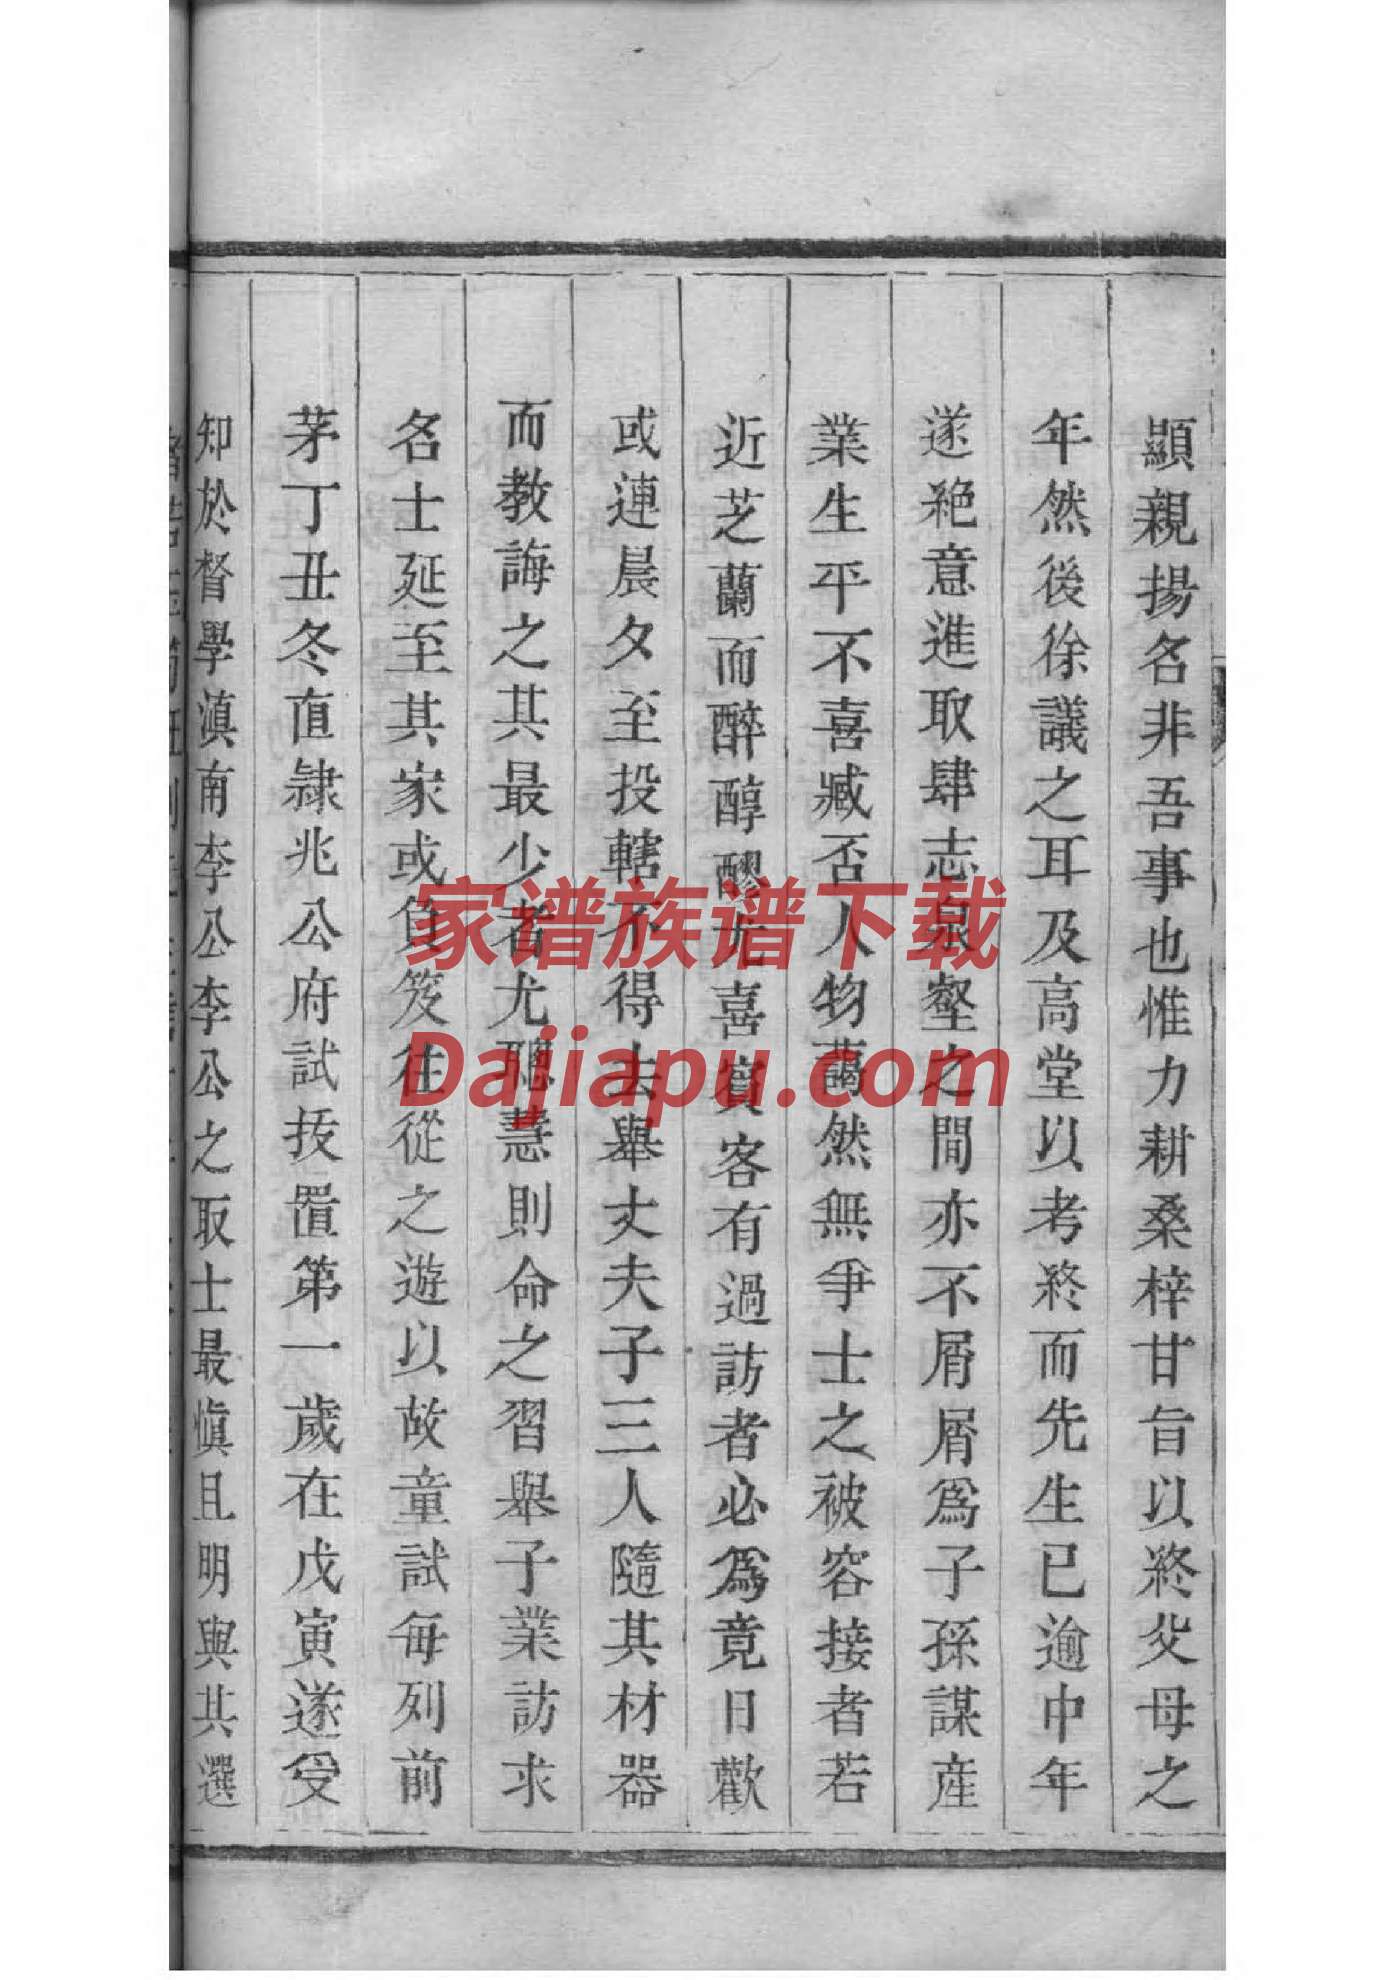 顯親揚名非吾事也惟力耕桑梓甘旨以終父母之
年然後徐議之耳及高堂以考終而先生已逾中年
遂絕意進取肆志泉壑之間亦不屑屑爲子孫謀產
業生平不喜臧否人物藹然無爭士之被容接者若
近芝蘭而醉醇醪尤喜賓客有過訪者必爲竟日歡
或連晨夕至投轄不得去舉丈夫子三人隨其材器
而教誨之其最少者尤聰慧則命之習舉子業訪求
名士延至其家或負笈往從之遊以故童試每列前
茅丁丑冬直隸兆公府試拔置第一歲在戊寅遂受
知於督學滇南李公李公之取士最慎且明與其選
家谱族谱下载
Dajiapu.com